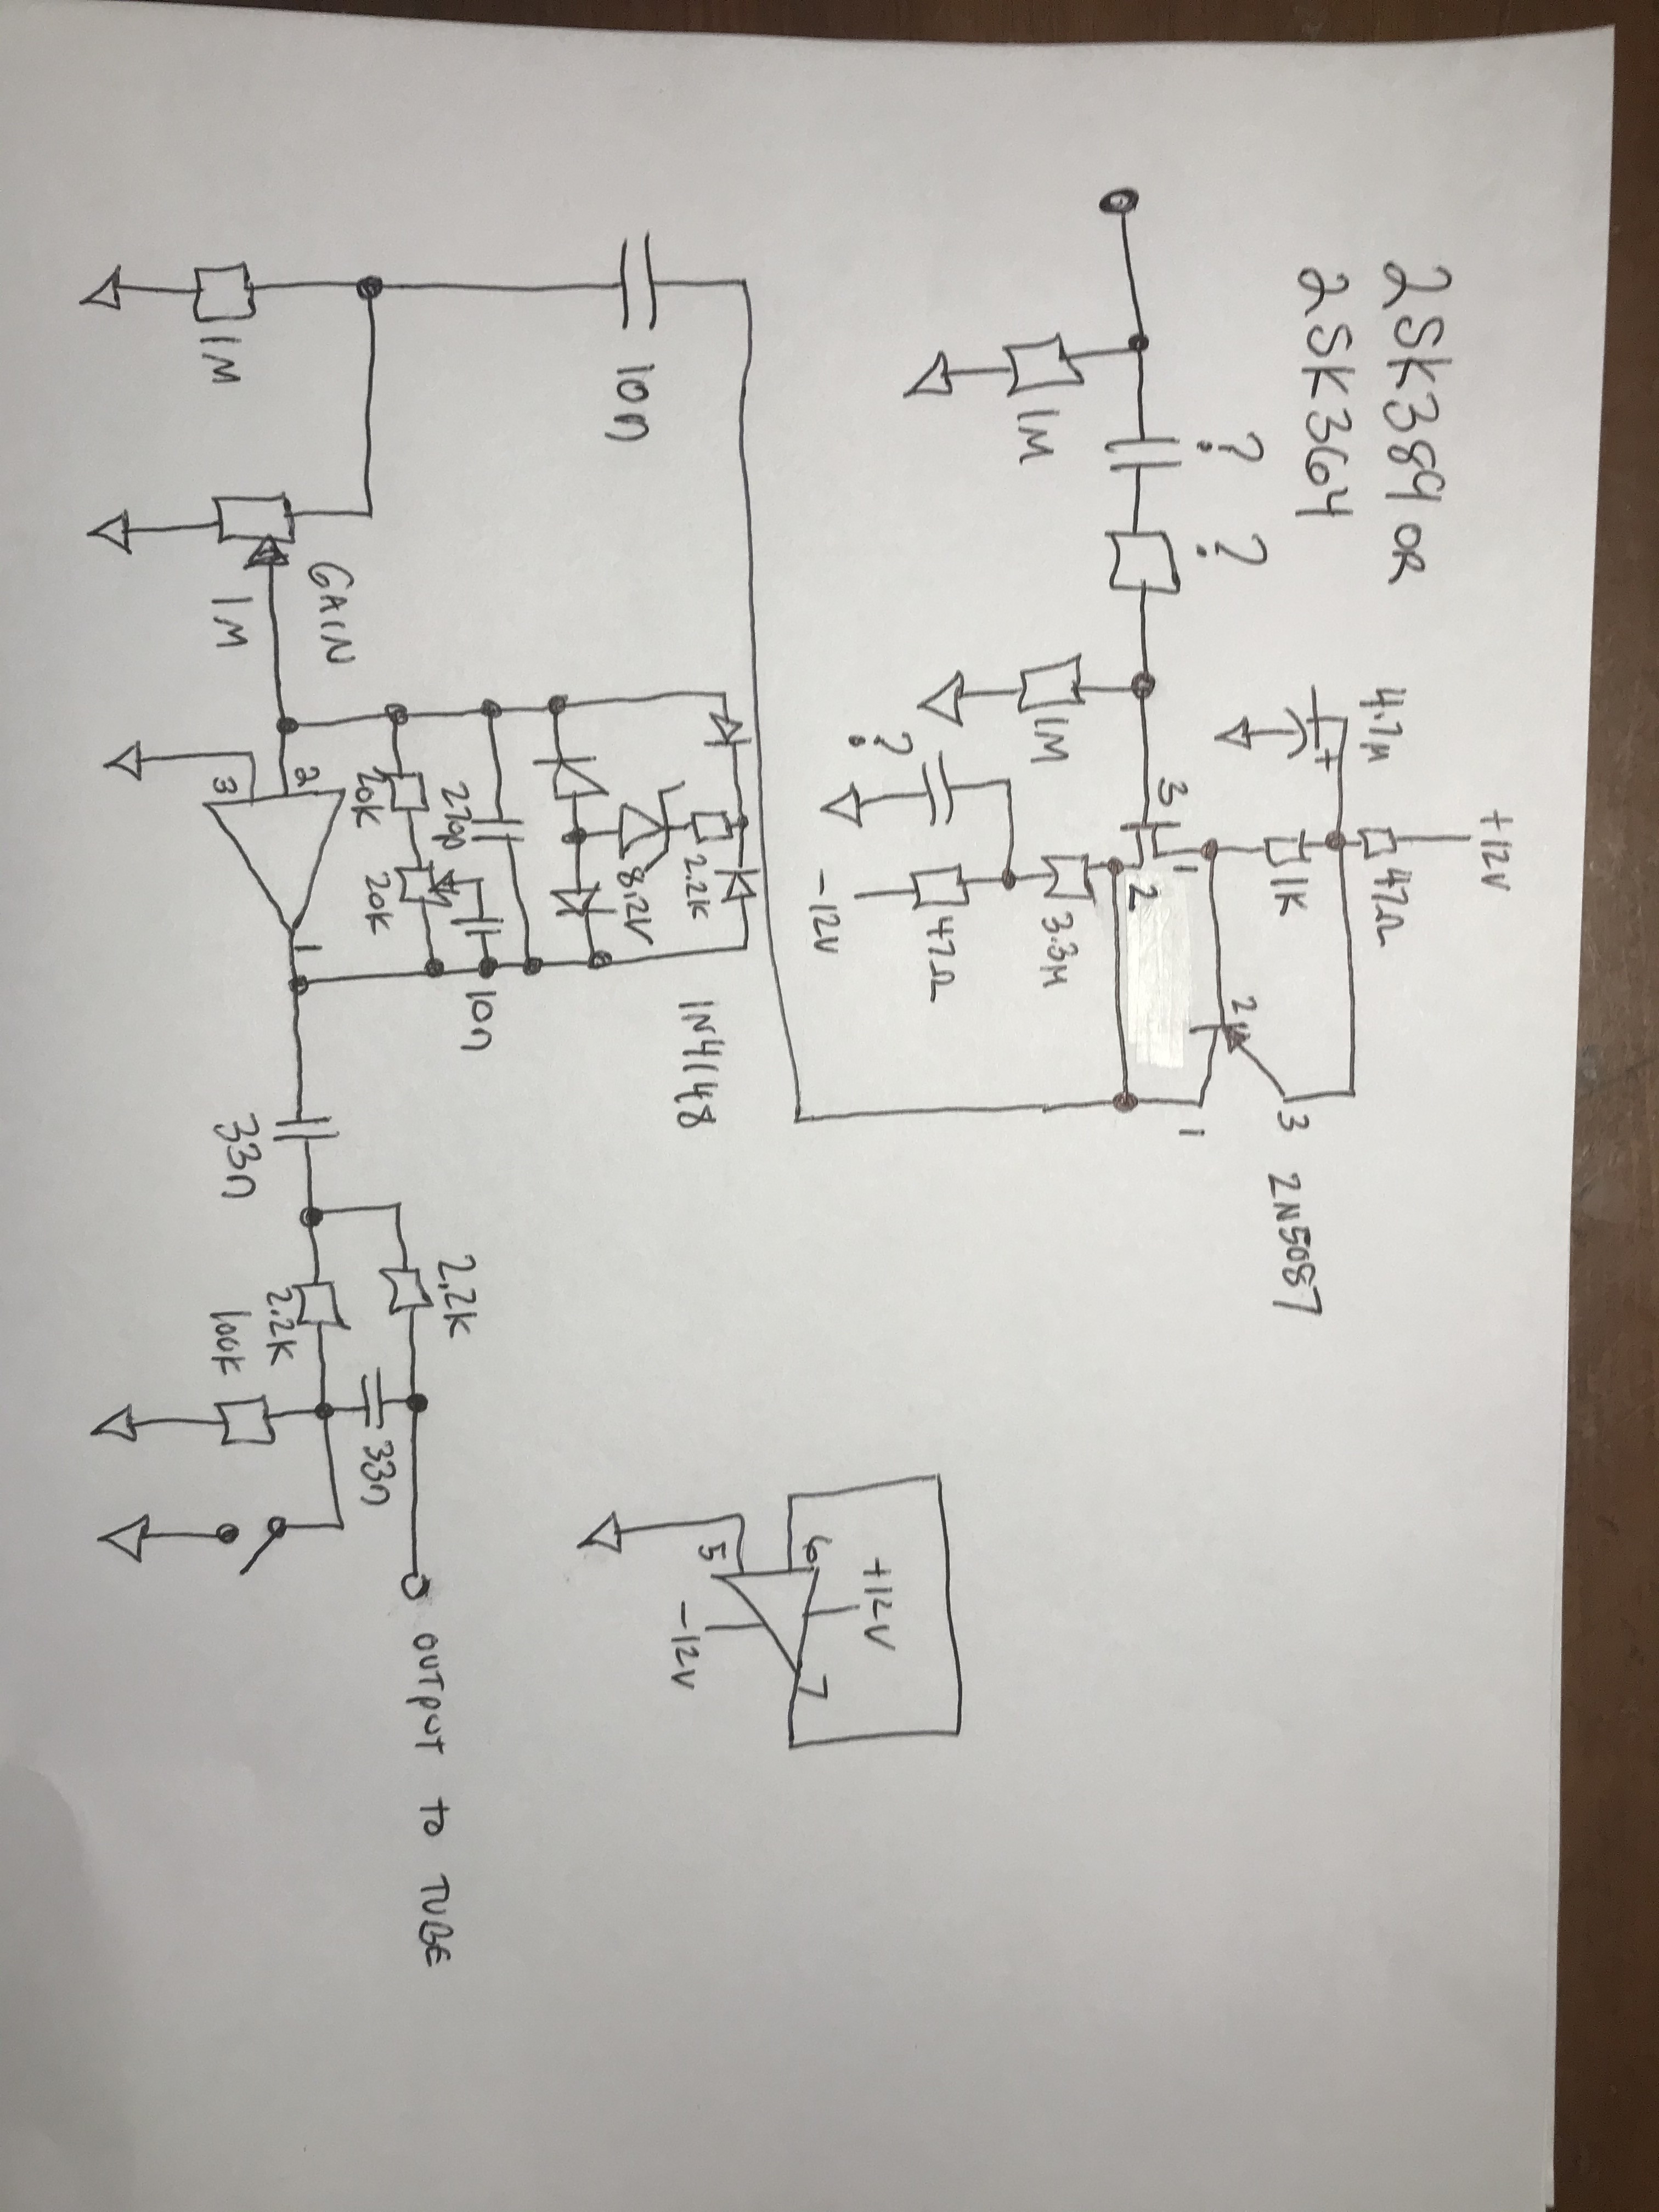 2SK389 OR
2SK364
+12V
4.7µ
47Ω
1K
?
?
3
1
2
2
3
2N5087
1
1M
1M
3.3M
?
47Ω
-12V
10n
2.2K
8.2V
1N4148
220p
20K
20K
10n
GAIN
1M
1M
2
3
1
33n
2.2K
2.2K
100K
33n
OUTPUT TO TUBE
+12V
6
5
7
-12V